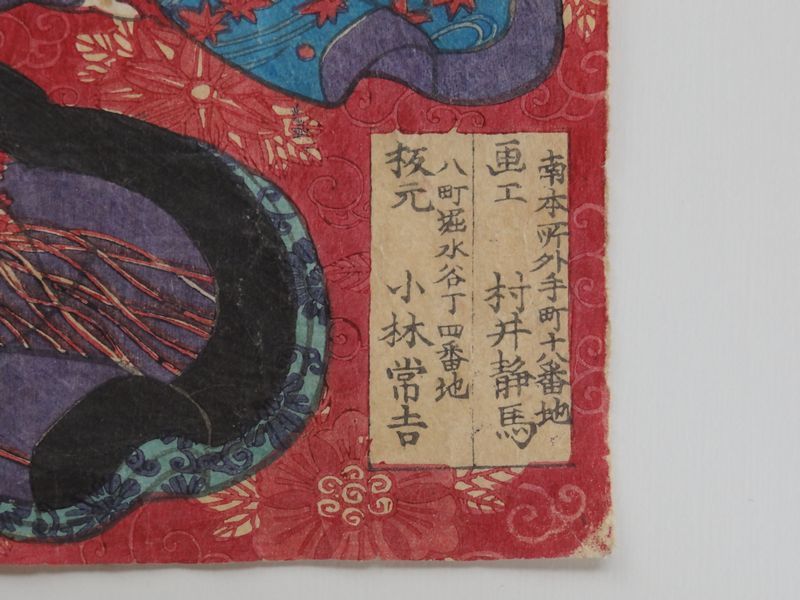 南本所外手町十八番地
画工 村井静馬
八町堀水谷丁四番地
板元 小林常吉